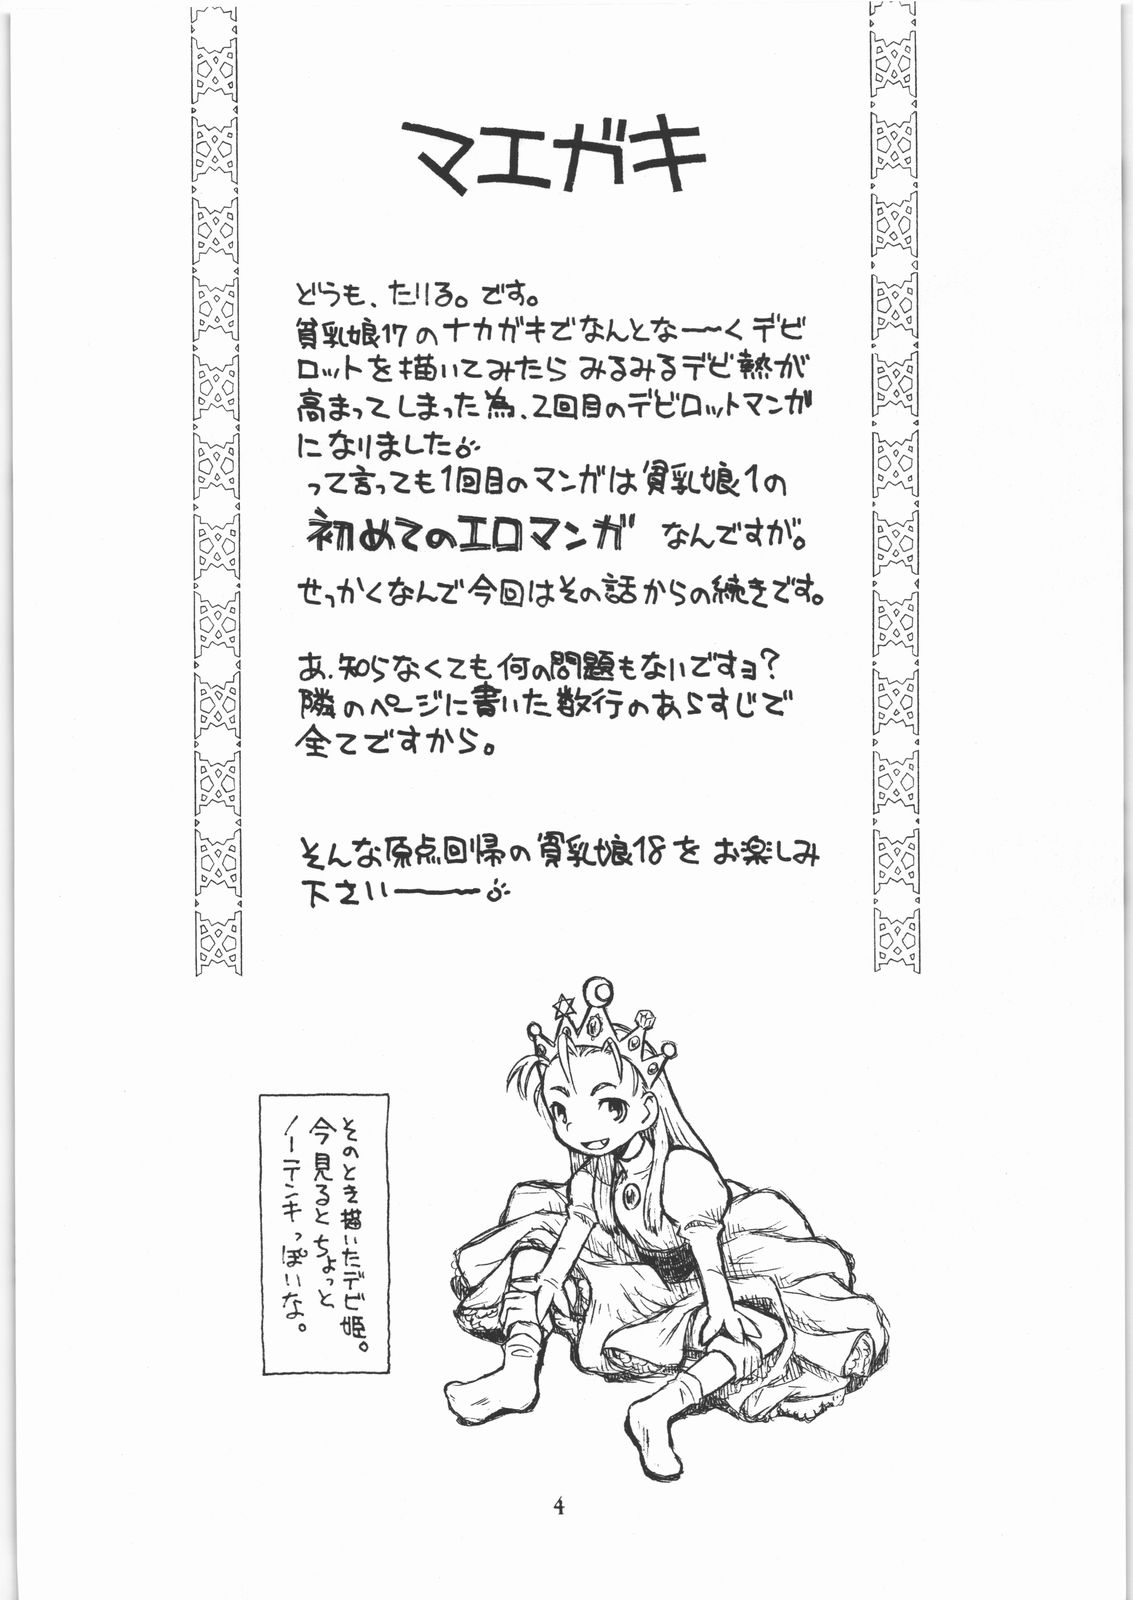 マエガキ
どうも、たりる。です。
貧乳娘17のナカガキでなんとな〜〜くデビ
ロットを描いてみたら みるみるデビ熱が
高まってしまった為、2回目のデビロットマンガ
になりました
って言っても1回目のマンガは貧乳娘1の
初めてのエロマンガ なんですが。
せっかくなんで今回はその話からの続きです。
あ、知らなくても何の問題もないですョ?
隣のページに書いた数行のあらすじで
全てですから。
そんな原点回帰の貧乳娘18をお楽しみ
下さいーー
そのとき描いたデビ姫。
今見るとちょっと
ノーテンキっぽいな。
4